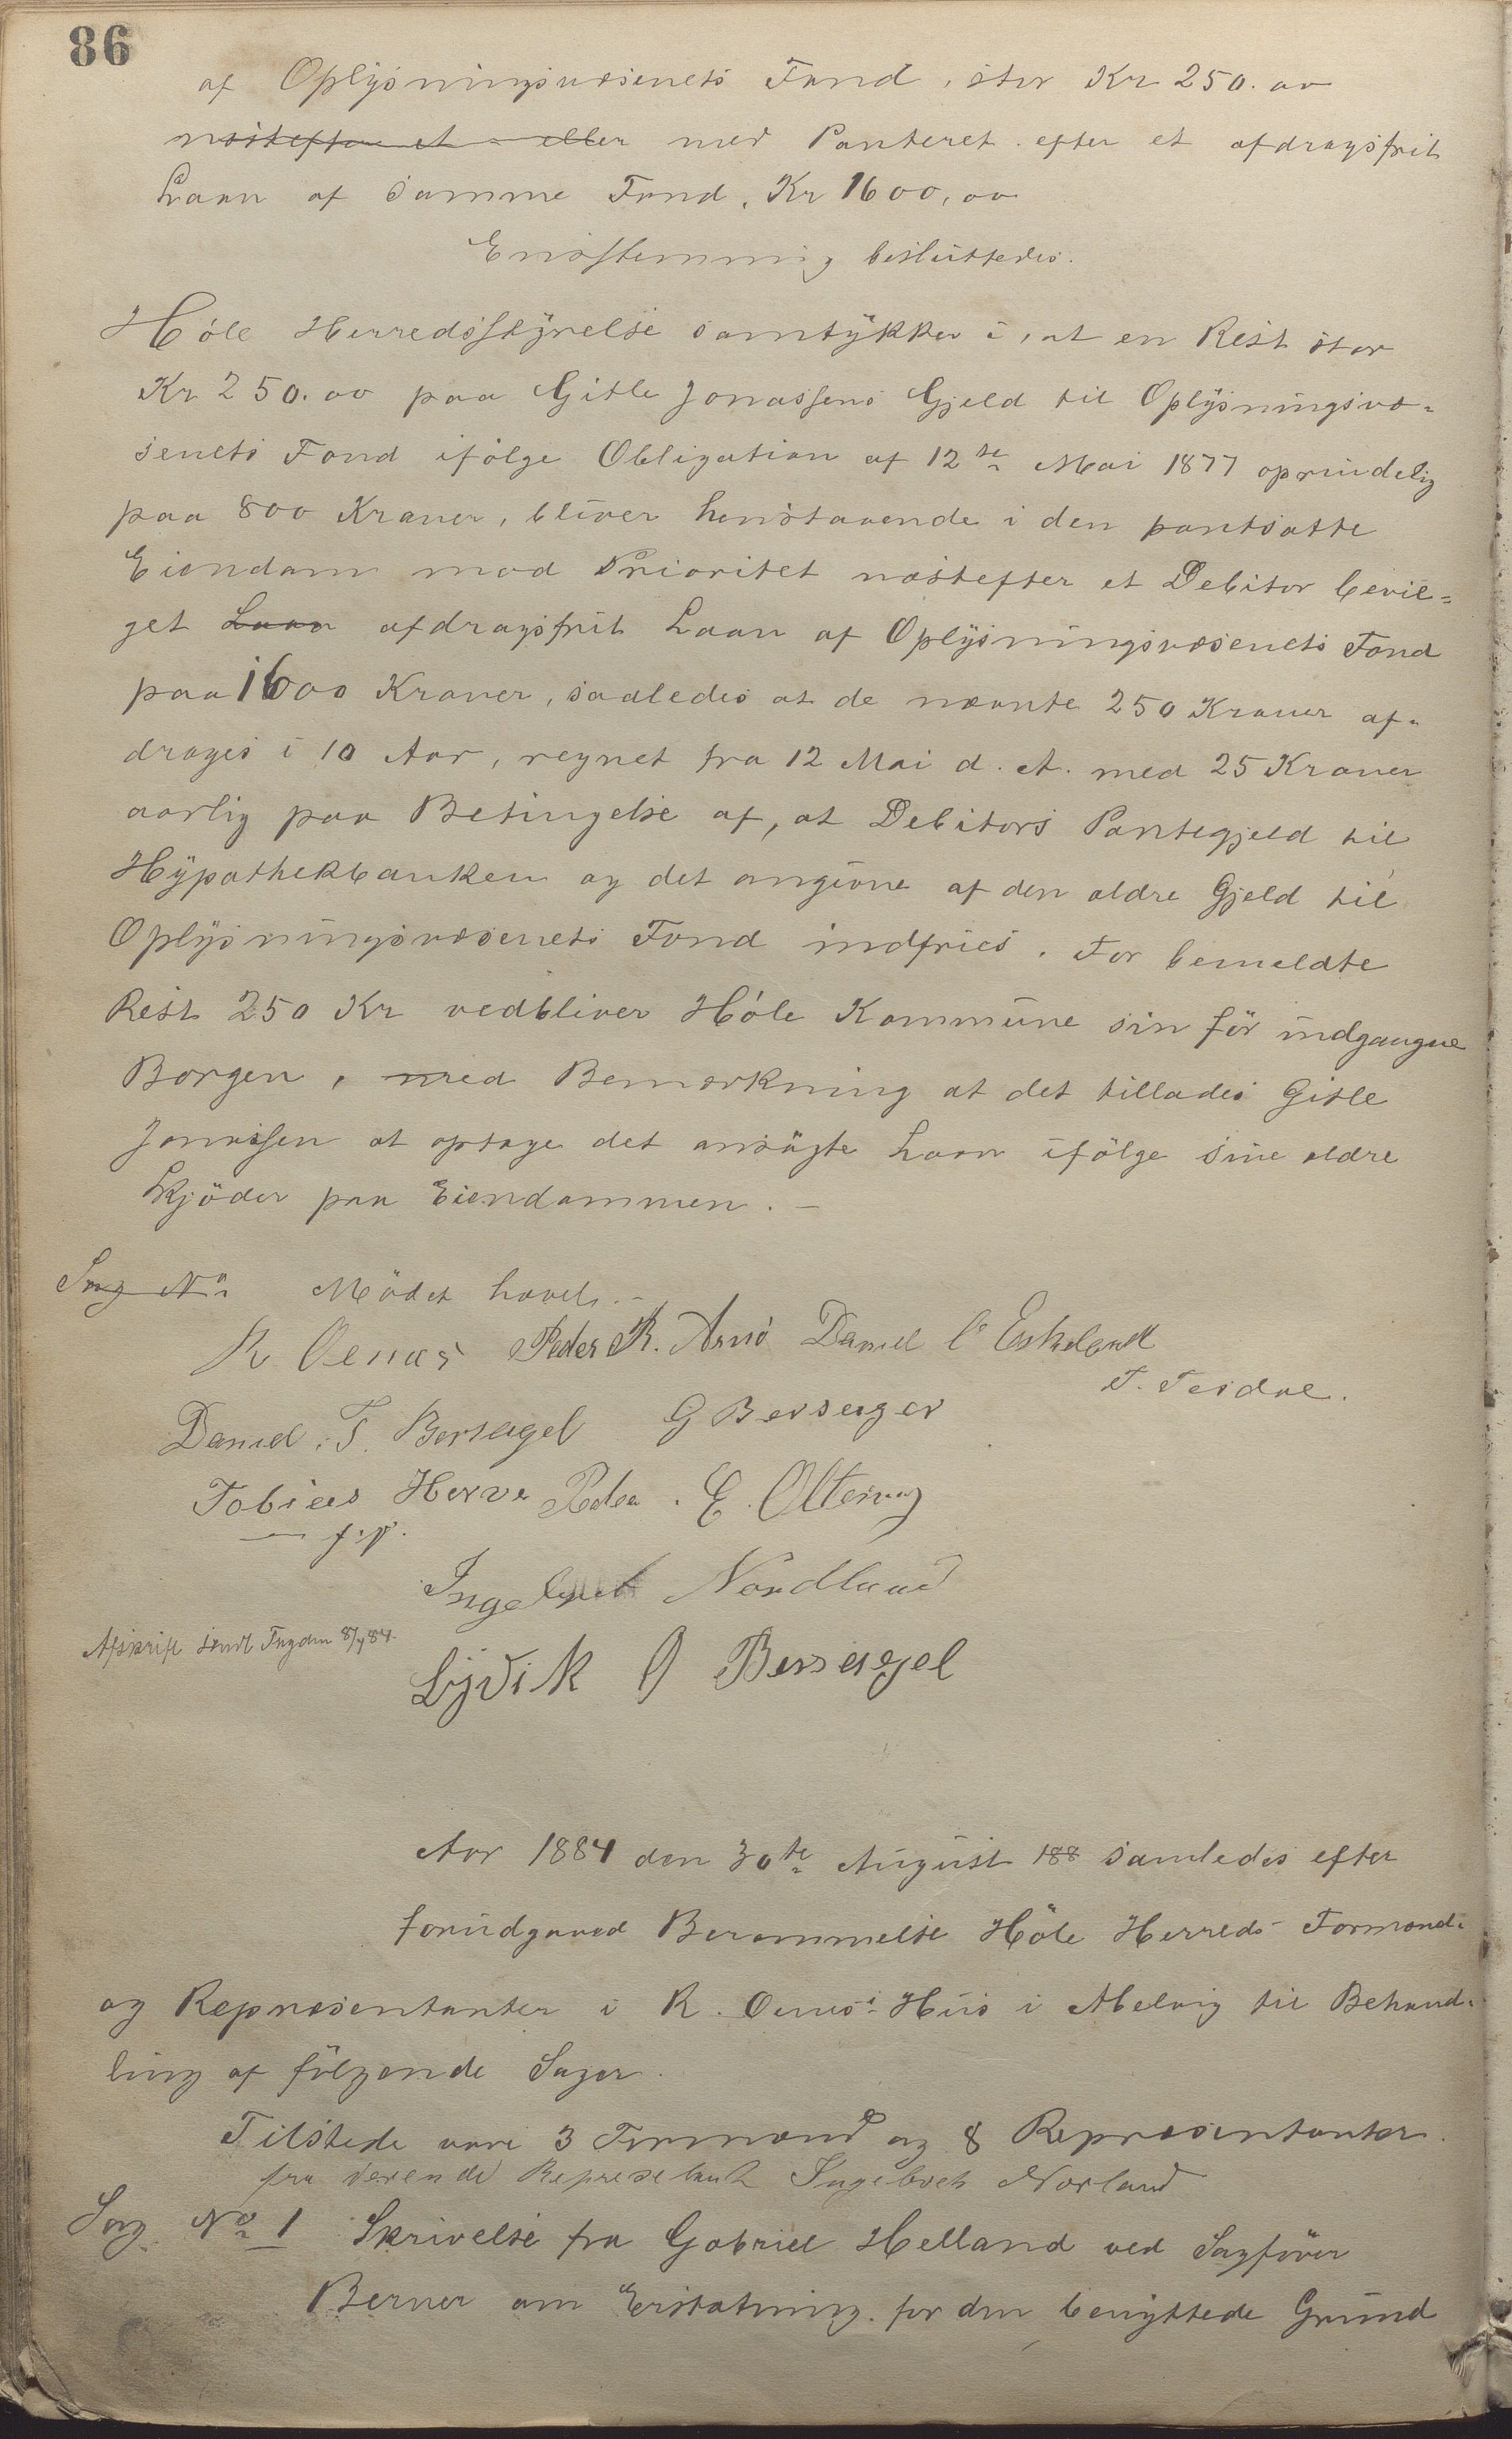 86
af Oplysningsvæsenets Fond, stor Kr 250.00
næstefter et eller med Panteret efter et afdragsfrit
Laan af samme Fond, Kr 1600,00
Enstemmig besluttedes.
Høle Herredsstyrelse samtykker i, at en Rest stor
Kr 250.00 paa Gitle Jonassens Gjeld til Oplysningsvæ-
senets Fond ifølge Obligation af 12te Mai 1877 oprindelig
paa 800 Kroner, bliver henstaaende i den pantsatte
Eiendom med Prioritet næstefter et Debitor bevil-
get Laan afdragsfrit Laan af Oplysningsvæsenets Fond
paa 1600 Kroner, saaledes at de nævnte 250 Kroner af-
drages i 10 Aar, regnet fra 12 Mai d. A. med 25 Kroner
aarlig paa Betingelse af, at Debitors Pantegjeld til
Hypothekbanken og det angivne af den ældre Gjeld til
Oplysningsvæsenets Fond indfries. For bemeldte
Rest 250 Kr vedbliver Høle Kommune sin før indgangne
Borgen, med Bemærkning at det tillades Gitle
Jonassen at optage det ansøgte Laan ifølge sine ældre
Skjøder paa Eiendommen. –
Sag No Mødet hævet. –
R Oenæs Peder R. Arnø Daniel C Eskeland
T. Tesdal.
Daniel. T. Bersagel G Bersagel
Tobias Herve Peder. E. Oltesvig
— f. p.
Ingebret Nordland
Afskrift sendt Fogden 8/7 84.
Lydik O Bersagel
Aar 1884 den 30te August 188 samledes efter
forudgaaed Berammelse Høle Herreds Formænd-
og Repræsentanter i R. Oenæs' Hus i Apelvig til Behand-
ling af følgende Sager.
Tilstede vare 3 Formænd og 8 Repræsentanter.
fra værende Represetant Ingebret Norland
Sag No 1 Skrivelse fra Gabriel Helland ved Sagfører
Berner om Erstatning for den benyttede Grund